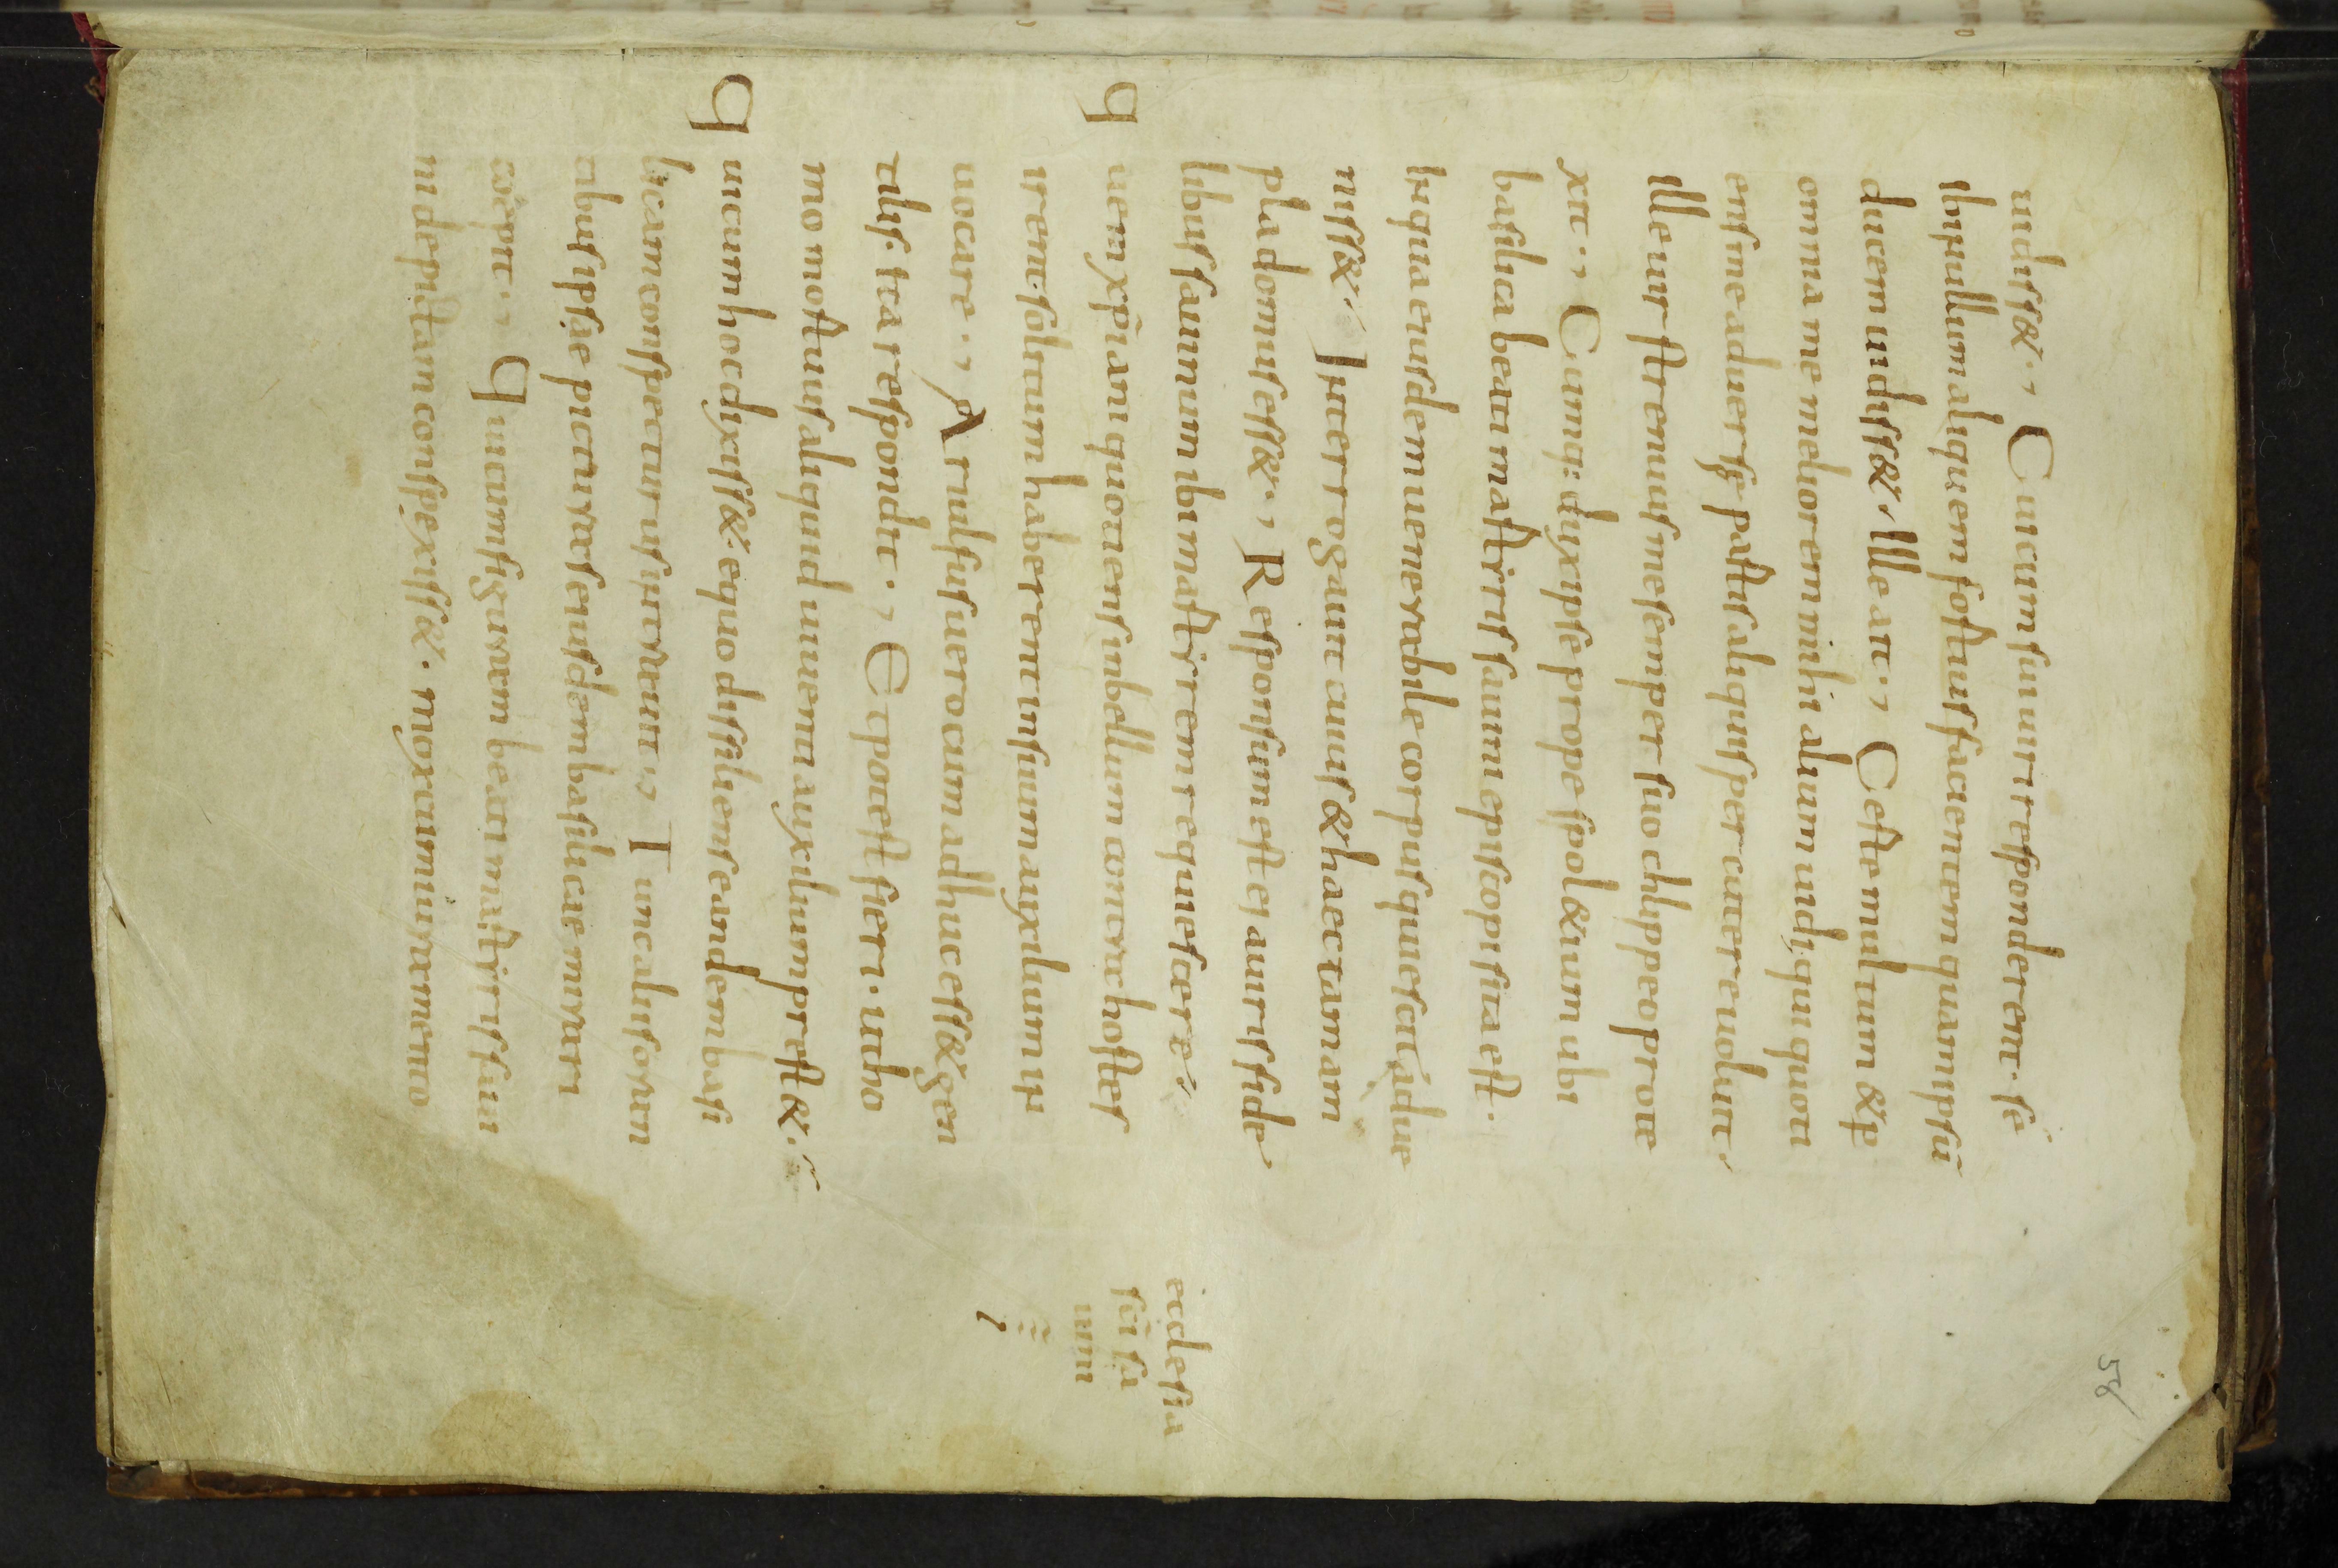 uidiss&. Cui cum sui uiri responderent. se
ibi nullum aliquem fortius facientem quam ipsū
ducem uidiss&, Ille ait. Teste multum & p
omnia me meliorem mihi alium uidi, qui quoti
ens me aduersę partis aliquis percutere uoluit,
Ille uir strenuus me semper suo clyppeo prote
xit. Cumq: dux ipse prope spol&ium ubi
basilica beati martiris sauini episcopi sita est.
In qua eiusdem uenerabile corpus quiescit adue
niss&, Interrogauit cuius & haec tam am
pla domus ess&. Responsum est ei a uiris fide
libus sauinum ibi martirem requiescere,
quem xp̄iani quotiens in bellum contra hostes
irent. solitum haberent in suum auxilium in
uocare. Ariulfus uero cum adhuc ess& gen
tilis. ita respondit. Et potest fieri. ut ho
mo mortuus aliquid uiuenti auxilium prest&.
Qui cum hoc dixiss&. equo dissiliens eandem basi
licam conspecturus intrauit. Tunc aliis oran
tibus ipse picturas eiusdem basilicae mirari
coepit. Qui cum figuram beati martiris saui
ni depictam conspexiss&. mox cum iuramento
ecclesia
sc̄i sa
uini
58